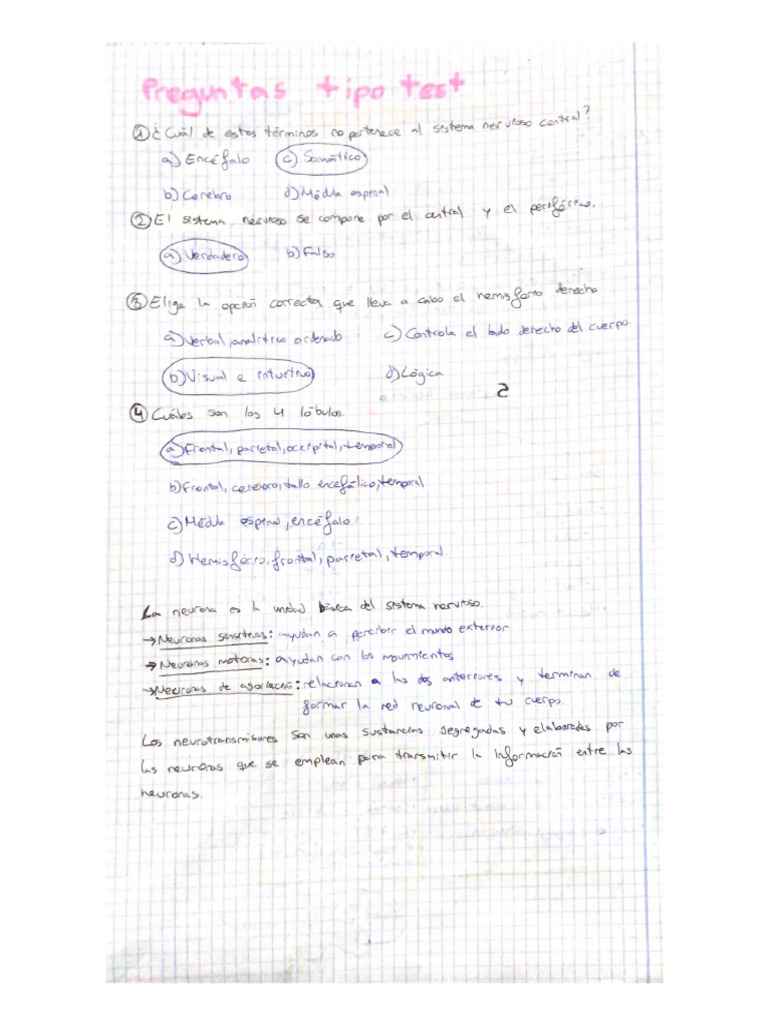 Preguntas tipo test
① ¿Cuál de estos términos no pertenece al sistema nervioso central?
a) Encéfalo c) Somático
b) Cerebro d) Médula espinal
② El sistema nervioso se compone por el central y el periférico.
a) Verdadero b) Falso
③ Elige la opción correcta que lleva a cabo el hemisferio derecho
a) Verbal, analítico ordenado c) Controla el lado derecho del cuerpo.
b) Visual e intuitivo d) Lógica
④ Cuáles son los 4 lóbulos.
a) Frontal, parietal, occipital, temporal
b) Frontal, cerebro, tallo encefálico, temporal
c) Médula espinal, encéfalo
d) Hemisferio, frontal, parietal, temporal
La neurona es la unidad básica del sistema nervioso.
→ Neuronas sensitivas: ayudan a percibir el mundo exterior
→ Neuronas motoras: ayudan con los movimientos
→ Neuronas de asociación: relacionan a las dos anteriores y terminan de
formar la red neuronal de tu cuerpo.
Los neurotransmisores son unas sustancias segregadas y elaboradas por
las neuronas que se emplean para transmitir la información entre las
neuronas.